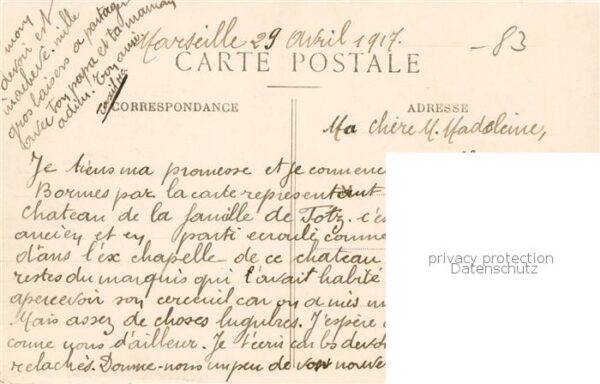 Marseille 29 Avril 1917.
-83
CARTE POSTALE
CORRESPONDANCE
ADRESSE
Ma chère M. Madeleine,
Je tiens ma promesse et je commence
Bormes par la carte representant
chateau de la famille de c'es
ancien et en parti ecroulé comme
dans l'ex chapelle de ce chateau
restes du marquis qui l'avait habité
apercevoir son cercueil car on a mis un
Mais assez de choses lugubres. J'espère
comme vous d'ailleur. Je t'écris car les devoi
relachés. Donne-nous un peu de vos nouve
mon
devoir est
inachevé. mille
gros baisers a partager
avec ton papa et ta maman
ton amie
privacy protection
Datenschutz